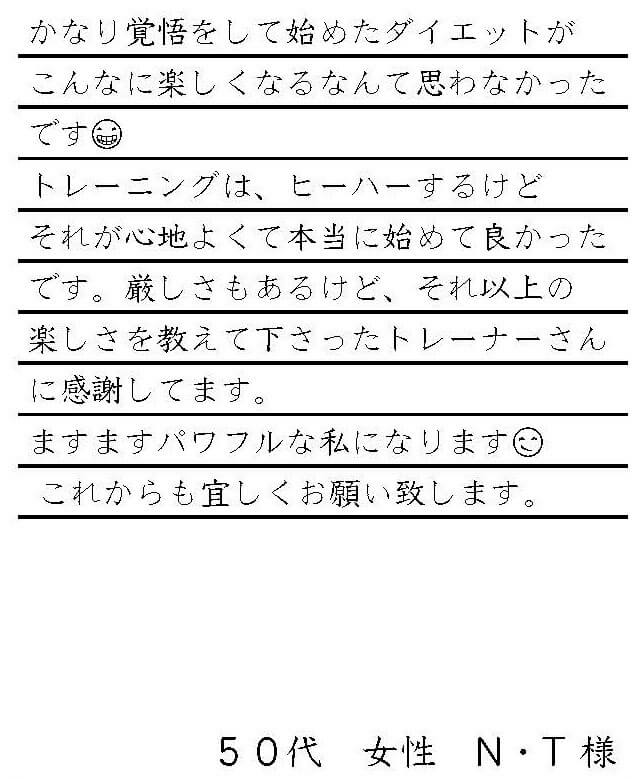 かなり覚悟をして始めたダイエットが
こんなに楽しくなるなんて思わなかった
です😁
トレーニングは、ヒーハーするけど
それが心地よくて本当に始めて良かった
です。厳しさもあるけど、それ以上の
楽しさを教えて下さったトレーナーさん
に感謝してます。
ますますパワフルな私になります😉
これからも宜しくお願い致します。
５０代　女性　Ｎ・Ｔ様